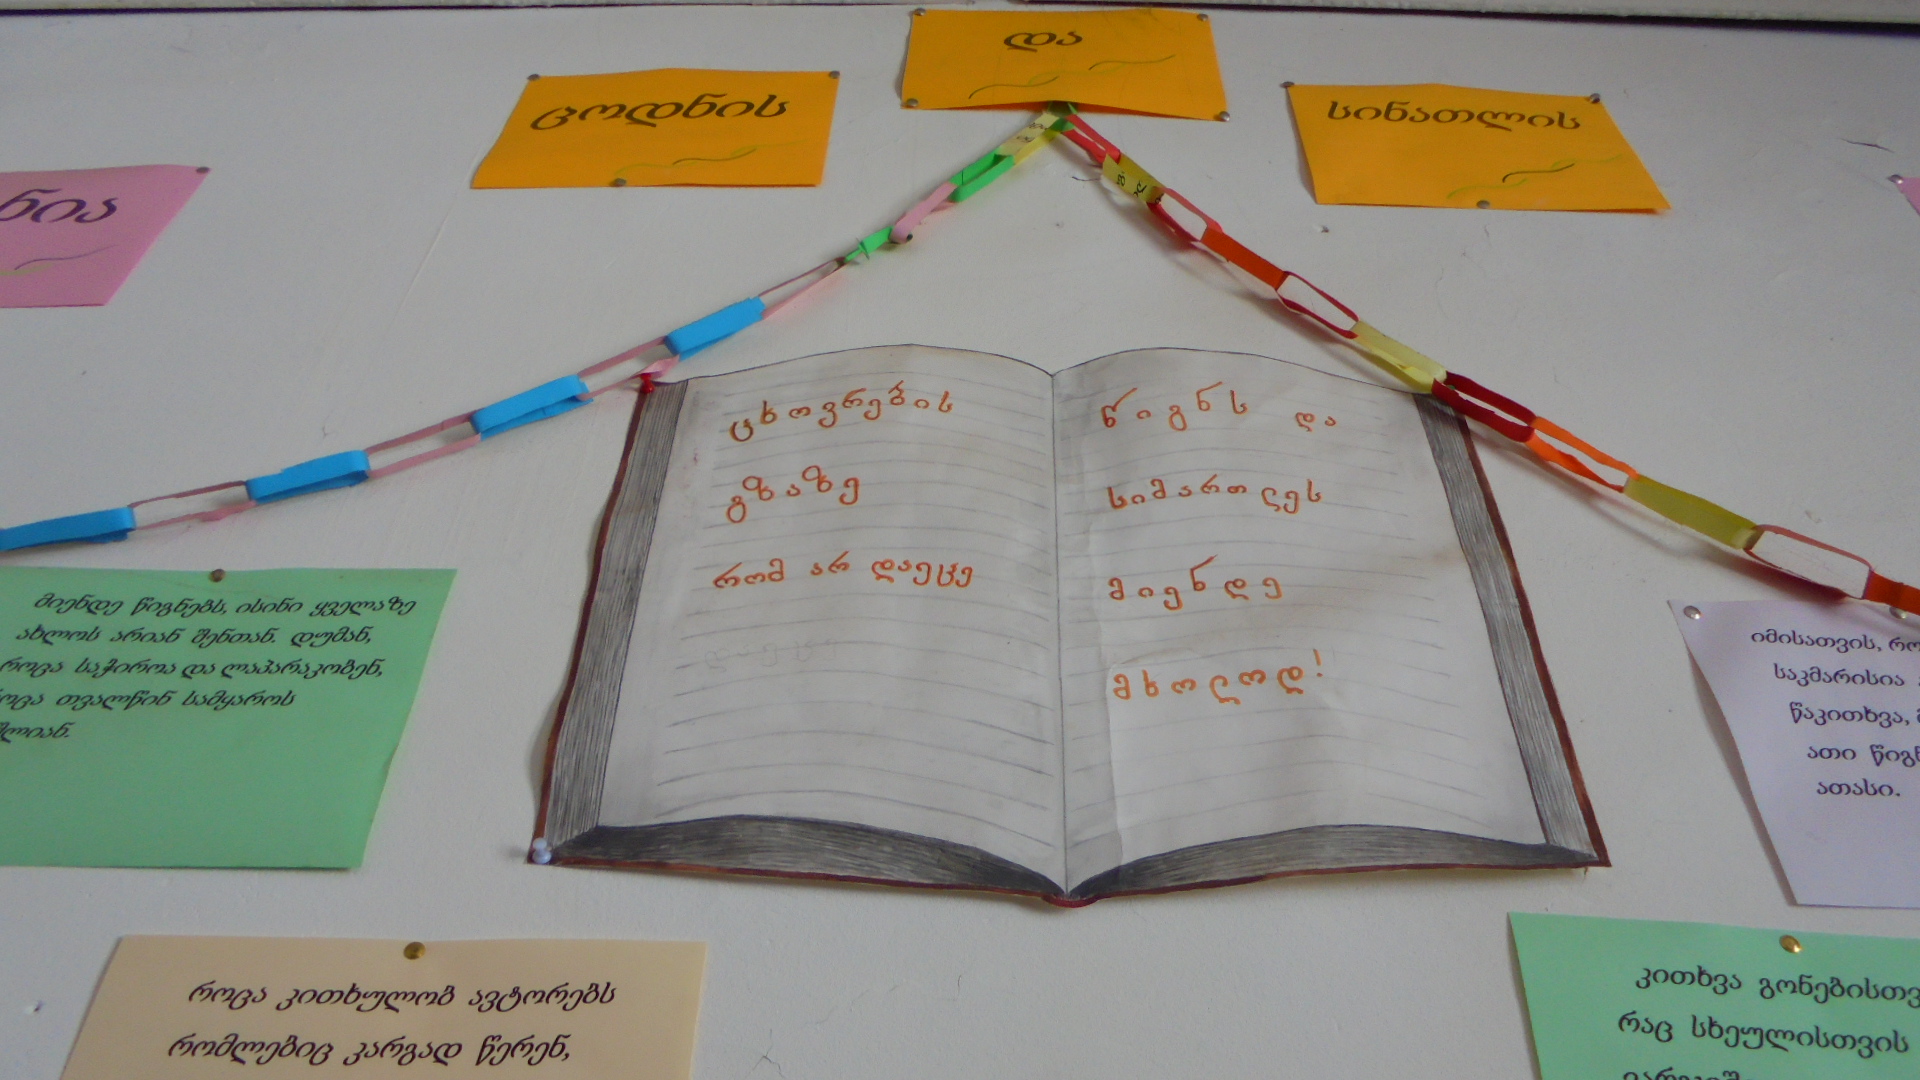 და
ცოდნის
სინათლის
ნია
ცხოვრების
გზაზე
რომ არ დაეცე
წიგნს და
სიმართლეს
მიენდე
მხოლოდ!
მიენდე წიგნებს, ისინი ყველაზე
ახლოს არიან შენთან. დუმან,
როცა საჭიროა და ლაპარაკობენ,
ოცა თვალწინ სამყაროს
შლიან.
იმისათვის, რო
საკმარისია
წაკითხვა,
ათი წიგნ
ათასი.
როცა კითხულობ ავტორებს
რომლებიც კარგად წერენ,
კითხვა გონებისთვ
რაც სხეულისთვის